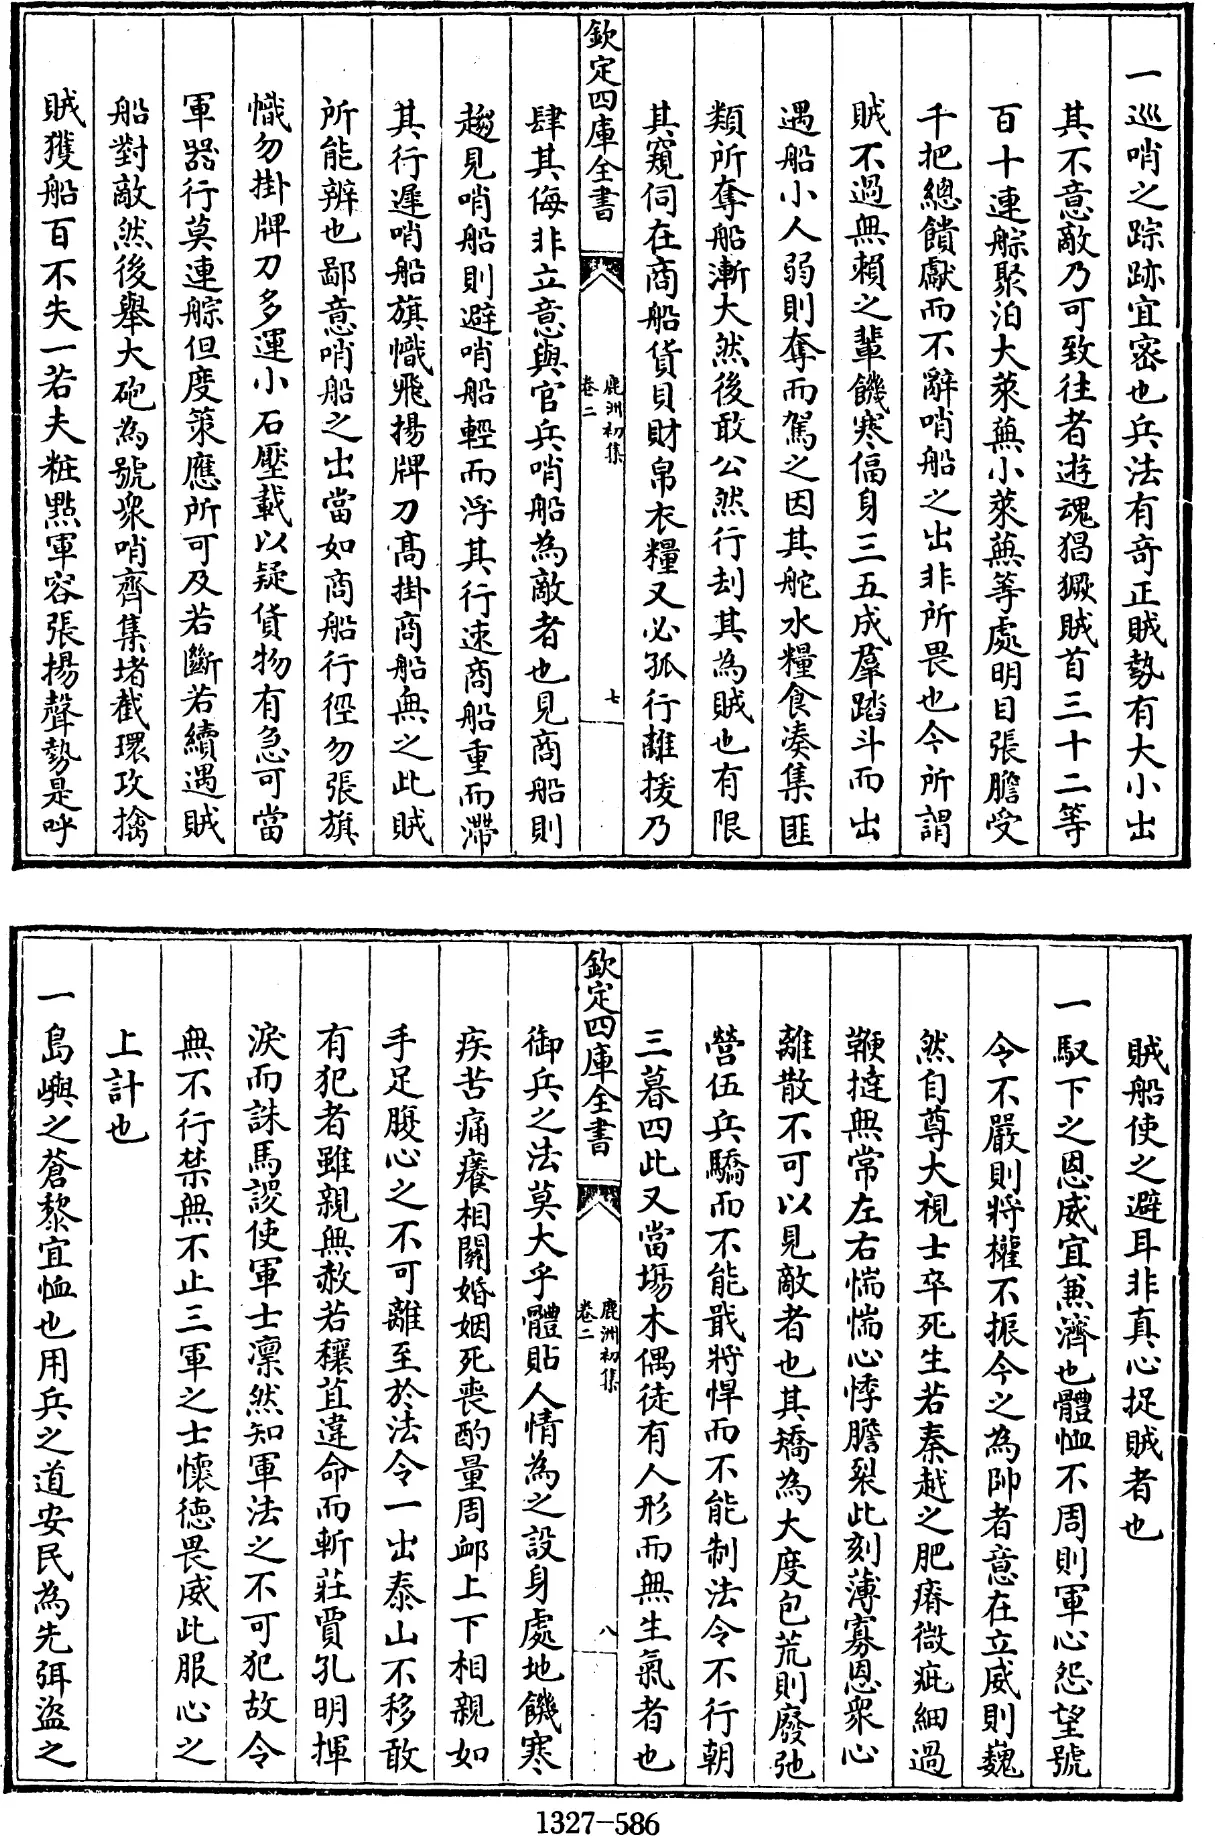 一巡哨之踪跡宜密也兵法有奇正賊勢有大小出
其不意敵乃可致往者遊魂猖獗賊首三十二等
百十連艅聚泊大萊蕪小萊蕪等處明目張膽受
千把總饋獻而不辭哨船之出非所畏也今所謂
賊不過無賴之輩饑寒偪身三五成羣踏斗而出
遇船小人弱則奪而駕之因其舵水糧食湊集匪
類所奪船漸大然後敢公然行刦其為賊也有限
其窺伺在商船貨貝財帛衣糧又必孤行離援乃
欽定四庫全書
鹿洲初集
卷二
七
肆其侮非立意與官兵哨船為敵者也見商船則
趨見哨船則避哨船輕而浮其行速商船重而滯
其行遲哨船旗幟飛揚牌刀高掛商船無之此賊
所能辨也鄙意哨船之出當如商船行徑勿張旗
幟勿掛牌刀多運小石壓載以疑貨物有急可當
軍器行莫連艅但度策應所可及若斷若續遇賊
船對敵然後舉大砲為號衆哨齊集堵截環攻擒
賊獲船百不失一若夫粧點軍容張揚聲勢是呼
賊船使之避耳非真心捉賊者也
一馭下之恩威宜兼濟也體恤不周則軍心怨望號
令不嚴則將權不振今之為帥者意在立威則巍
然自尊大視士卒死生若秦越之肥瘠微疵細過
鞭撻無常左右惴惴心悸膽裂此刻薄寡恩衆心
離散不可以見敵者也其矯為大度包荒則廢弛
營伍兵驕而不能戢將悍而不能制法令不行朝
三暮四此又當場木偶徒有人形而無生氣者也
欽定四庫全書
鹿洲初集
卷二
八
御兵之法莫大乎體貼人情為之設身處地饑寒
疾苦痛癢相關婚姻死喪酌量周卹上下相親如
手足腹心之不可離至於法令一出泰山不移敢
有犯者雖親無赦若穰苴違命而斬莊賈孔明揮
淚而誅馬謖使軍士凜然知軍法之不可犯故令
無不行禁無不止三軍之士懷德畏威此服心之
上計也
一島嶼之蒼黎宜恤也用兵之道安民為先弭盜之
1327-586